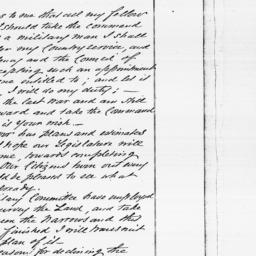 s to me that all my fellow
I should take the command
a military man I shall
er my Country service, and
ency and the Council of
ccepting such an appointment
one entitled to; and let it
, I will do my duty; —
the last War and am still
ward and take the Command
is your wish. —
now has plans and estimates
I hope our Legislature will
me, towards completing
Our Citizens turn out away
ld be pleased to see what
ready.
itary Committee have employed
urvey the Land, and take
een the Narrows and this
finished I will transmit
plan of it —
reasons for declining the